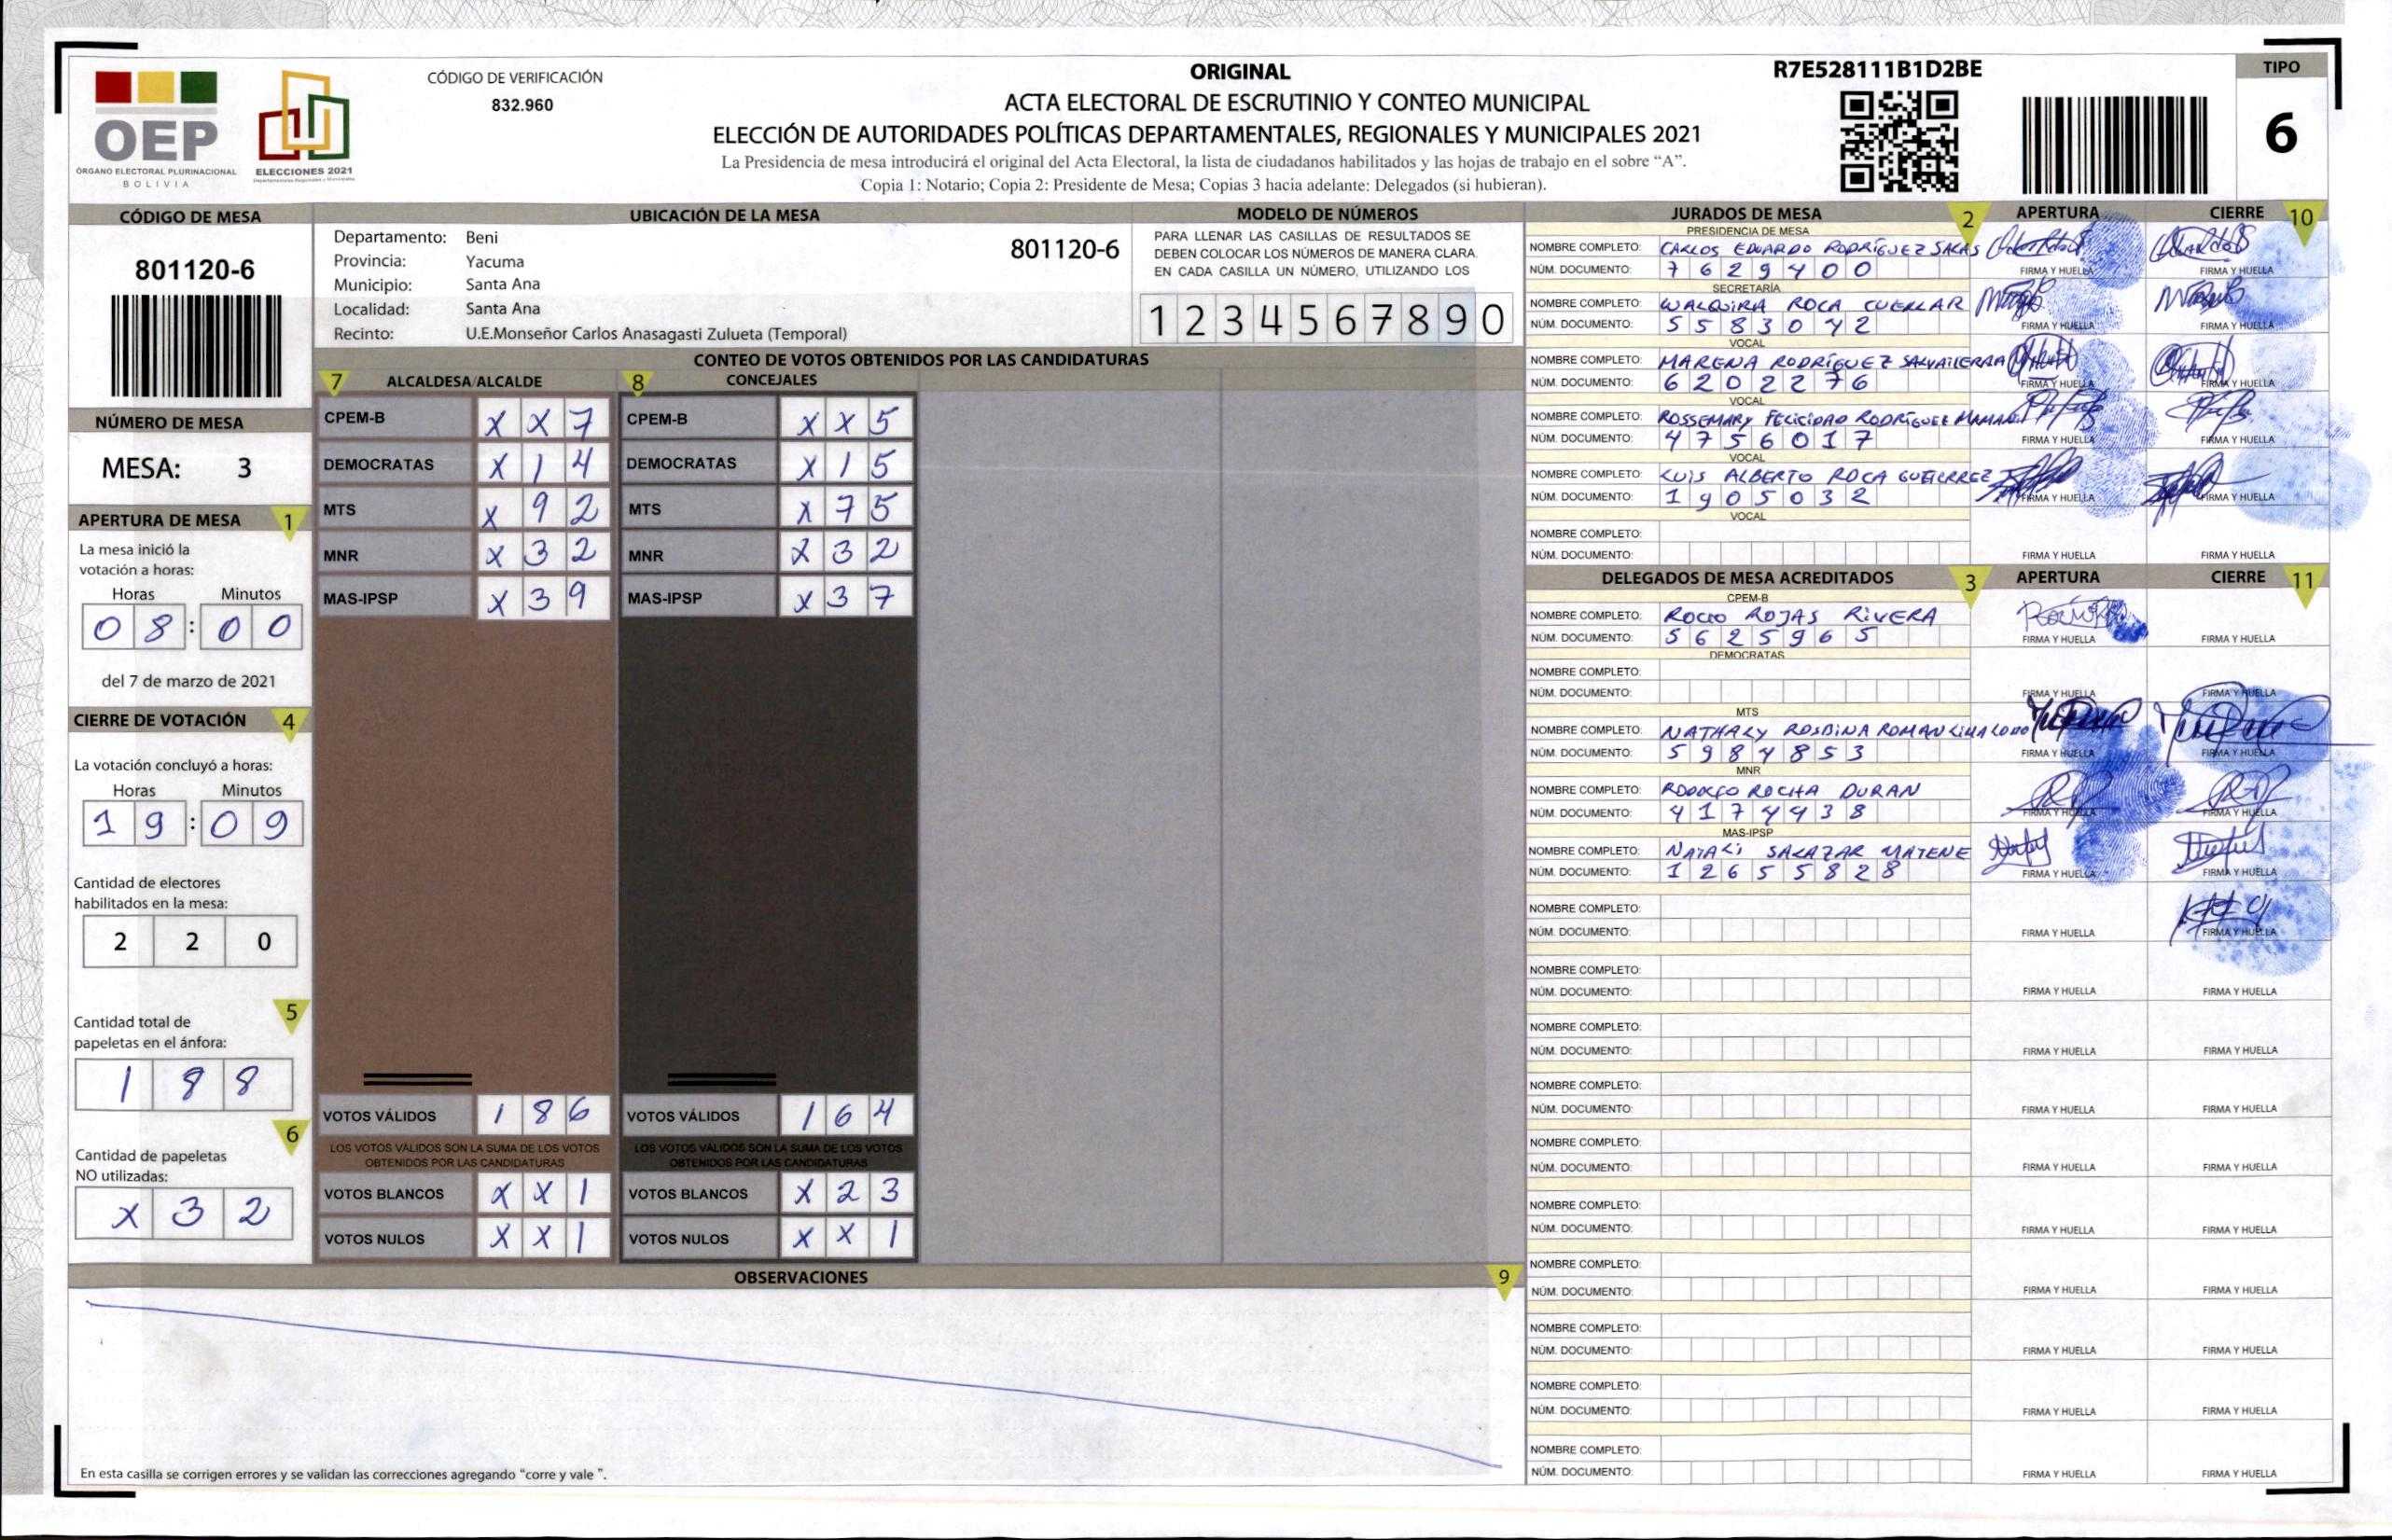 OEP
ÓRGANO ELECTORAL PLURINACIONAL
BOLIVIA
ELECCIONES 2021
CÓDIGO DE VERIFICACIÓN
832.960
ORIGINAL
ACTA ELECTORAL DE ESCRUTINIO Y CONTEO MUNICIPAL
ELECCIÓN DE AUTORIDADES POLÍTICAS DEPARTAMENTALES, REGIONALES Y MUNICIPALES 2021
La Presidencia de mesa introducirá el original del Acta Electoral, la lista de ciudadanos habilitados y las hojas de trabajo en el sobre “A”.
Copia 1: Notario; Copia 2: Presidente de Mesa; Copias 3 hacia adelante: Delegados (si hubieran).
R7E528111B1D2BE
TIPO
6
CÓDIGO DE MESA
801120-6
NÚMERO DE MESA
MESA: 3
APERTURA DE MESA 1
La mesa inició la
votación a horas:
Horas Minutos
08:00
del 7 de marzo de 2021
CIERRE DE VOTACIÓN 4
La votación concluyó a horas:
Horas Minutos
19:09
Cantidad de electores
habilitados en la mesa:
2 2 0
5
Cantidad total de
papeletas en el ánfora:
1 8 8
6
Cantidad de papeletas
NO utilizadas:
X 3 2
UBICACIÓN DE LA MESA
Departamento: Beni
801120-6
Provincia: Yacuma
Municipio: Santa Ana
Localidad: Santa Ana
Recinto: U.E.Monseñor Carlos Anasagasti Zulueta (Temporal)
MODELO DE NÚMEROS
PARA LLENAR LAS CASILLAS DE RESULTADOS SE
DEBEN COLOCAR LOS NÚMEROS DE MANERA CLARA.
EN CADA CASILLA UN NÚMERO, UTILIZANDO LOS
1 2 3 4 5 6 7 8 9 0
CONTEO DE VOTOS OBTENIDOS POR LAS CANDIDATURAS
7 ALCALDESA/ALCALDE
CPEM-B X X 7
DEMOCRATAS X 1 4
MTS X 9 2
MNR X 3 2
MAS-IPSP X 3 9
VOTOS VÁLIDOS 1 8 6
LOS VOTOS VÁLIDOS SON LA SUMA DE LOS VOTOS
OBTENIDOS POR LAS CANDIDATURAS
VOTOS BLANCOS X X 1
VOTOS NULOS X X 1
8 CONCEJALES
CPEM-B X X 5
DEMOCRATAS X 1 5
MTS X 7 5
MNR X 3 2
MAS-IPSP X 3 7
VOTOS VÁLIDOS 1 6 4
LOS VOTOS VÁLIDOS SON LA SUMA DE LOS VOTOS
OBTENIDOS POR LAS CANDIDATURAS
VOTOS BLANCOS X 2 3
VOTOS NULOS X X 1
OBSERVACIONES 9
En esta casilla se corrigen errores y se validan las correcciones agregando “corre y vale ”.
JURADOS DE MESA 2 APERTURA CIERRE 10
PRESIDENCIA DE MESA
NOMBRE COMPLETO: CARLOS EDUARDO RODRÍGUEZ SALAS
NÚM. DOCUMENTO: 7629400 FIRMA Y HUELLA FIRMA Y HUELLA
SECRETARÍA
NOMBRE COMPLETO: WALQUIRA ROCA CUELLAR
NÚM. DOCUMENTO: 5583042 FIRMA Y HUELLA FIRMA Y HUELLA
VOCAL
NOMBRE COMPLETO: MARENA RODRÍGUEZ SALVATIERRA
NÚM. DOCUMENTO: 6202276 FIRMA Y HUELLA FIRMA Y HUELLA
VOCAL
NOMBRE COMPLETO: ROSSEMARY FELICIDAD RODRÍGUEZ MAMANI
NÚM. DOCUMENTO: 4756017 FIRMA Y HUELLA FIRMA Y HUELLA
VOCAL
NOMBRE COMPLETO: LUIS ALBERTO ROCA GUTIERREZ
NÚM. DOCUMENTO: 1905032 FIRMA Y HUELLA FIRMA Y HUELLA
VOCAL
NOMBRE COMPLETO:
NÚM. DOCUMENTO: FIRMA Y HUELLA FIRMA Y HUELLA
DELEGADOS DE MESA ACREDITADOS 3 APERTURA CIERRE 11
CPEM-B
NOMBRE COMPLETO: ROCIO ROJAS RIVERA
NÚM. DOCUMENTO: 5625965 FIRMA Y HUELLA FIRMA Y HUELLA
DEMOCRATAS
NOMBRE COMPLETO:
NÚM. DOCUMENTO: FIRMA Y HUELLA FIRMA Y HUELLA
MTS
NOMBRE COMPLETO: NATHALY ROSBINA ROMAN
NÚM. DOCUMENTO: 5984853 FIRMA Y HUELLA FIRMA Y HUELLA
MNR
NOMBRE COMPLETO: RODOLFO ROCHA DURAN
NÚM. DOCUMENTO: 4174438 FIRMA Y HUELLA FIRMA Y HUELLA
MAS-IPSP
NOMBRE COMPLETO: NATALI SALAZAR MATENE
NÚM. DOCUMENTO: 12655828 FIRMA Y HUELLA FIRMA Y HUELLA
NOMBRE COMPLETO:
NÚM. DOCUMENTO: FIRMA Y HUELLA FIRMA Y HUELLA
NOMBRE COMPLETO:
NÚM. DOCUMENTO: FIRMA Y HUELLA FIRMA Y HUELLA
NOMBRE COMPLETO:
NÚM. DOCUMENTO: FIRMA Y HUELLA FIRMA Y HUELLA
NOMBRE COMPLETO:
NÚM. DOCUMENTO: FIRMA Y HUELLA FIRMA Y HUELLA
NOMBRE COMPLETO:
NÚM. DOCUMENTO: FIRMA Y HUELLA FIRMA Y HUELLA
NOMBRE COMPLETO:
NÚM. DOCUMENTO: FIRMA Y HUELLA FIRMA Y HUELLA
NOMBRE COMPLETO:
NÚM. DOCUMENTO: FIRMA Y HUELLA FIRMA Y HUELLA
NOMBRE COMPLETO:
NÚM. DOCUMENTO: FIRMA Y HUELLA FIRMA Y HUELLA
NOMBRE COMPLETO:
NÚM. DOCUMENTO: FIRMA Y HUELLA FIRMA Y HUELLA
NOMBRE COMPLETO:
NÚM. DOCUMENTO: FIRMA Y HUELLA FIRMA Y HUELLA